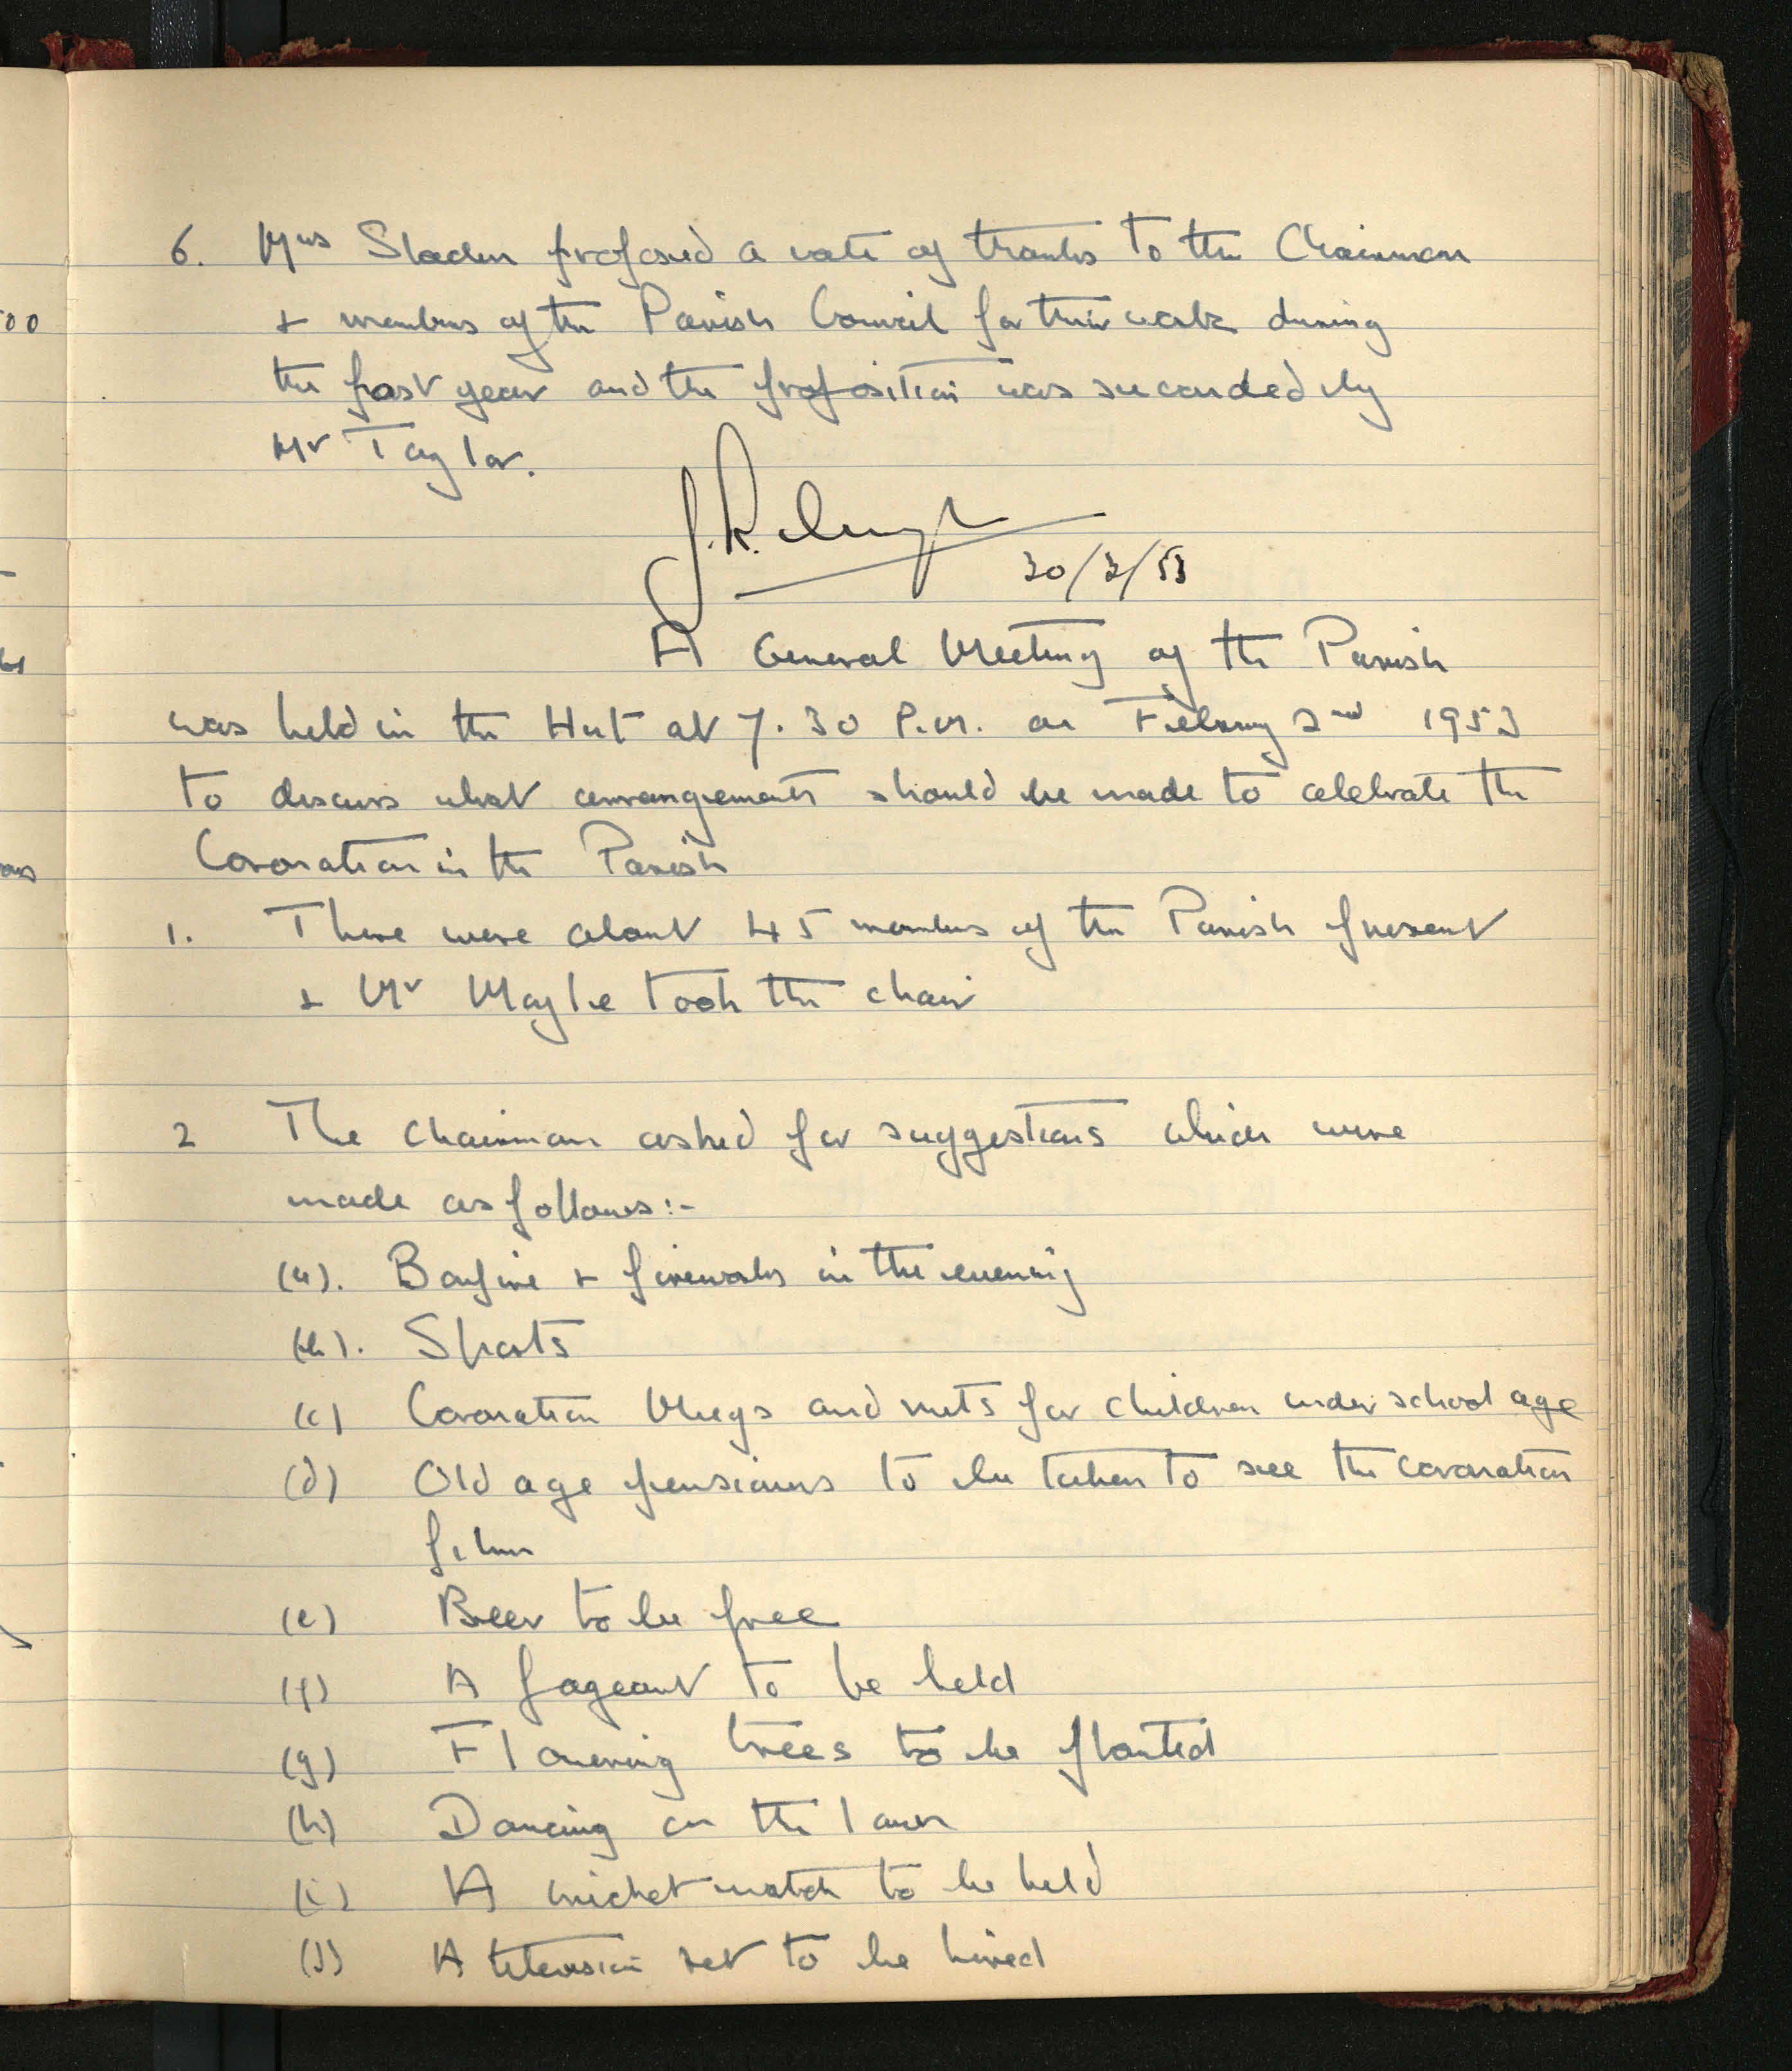 6. Mrs Sladen proposed a vote of thanks to the Chairman
+ members of the Parish Council for their work during
the past year and the proposition was seconded by
Mr Taylor.
30/3/53
A General Meeting of the Parish
was held in the Hut at 7.30 P.M. on February 2nd 1953
to discuss what arrangements should be made to celebrate the
Coronation in the Parish
1. There were about 45 members of the Parish present
+ Mr took the chair
2 The Chairman asked for suggestions which were
made as follows:-
(a). Bonfire + fireworks in the evening
(b). Sports
(c) Coronation Mugs and nuts for children under school age
(d) Old age pensioners to be taken to see the coronation
film
(e) Beer to be free
(f) A pageant to be held
(g) Flowering trees to be planted
(h) Dancing on the lawn
(i) A cricket match to be held
(j) A television set to be hired
00